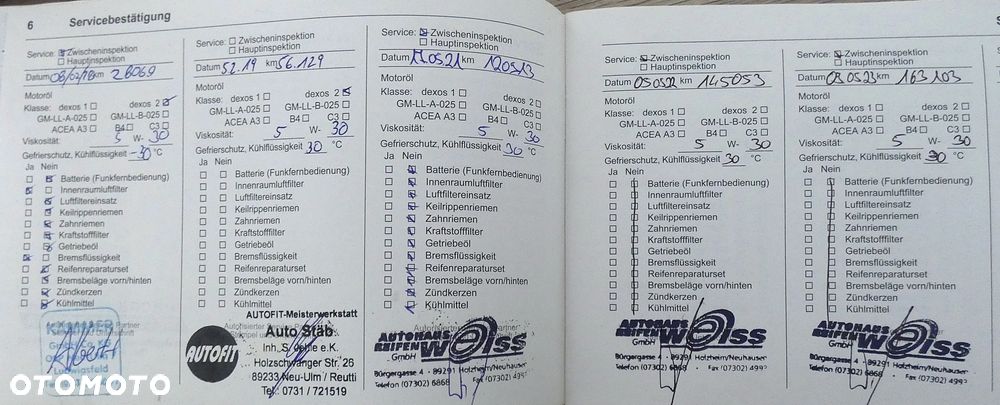 6 Servicebestätigung
Service: Zwischeninspektion
Hauptinspektion
Datum 08/02/18 km 28069
Motoröl
Klasse: dexos 1 dexos 2
GM-LL-A-025 GM-LL-B-025
ACEA A3 B4 C3
Viskosität: 5 W- 30
Gefrierschutz, Kühlflüssigkeit -30 °C
Ja Nein
Batterie (Funkfernbedienung)
Innenraumluftfilter
Luftfiltereinsatz
Keilrippenriemen
Zahnriemen
Kraftstofffilter
Getriebeöl
Bremsflüssigkeit
Reifenreparaturset
Bremsbeläge vorn/hinten
Zündkerzen
Kühlmittel
Ludwigsfeld
Service: Zwischeninspektion
Hauptinspektion
Datum 5.2.19 km 56.129
Motoröl
Klasse: dexos 1 dexos 2
GM-LL-A-025 GM-LL-B-025
ACEA A3 B4 C3
Viskosität: 5 W- 30
Gefrierschutz, Kühlflüssigkeit 30 °C
Ja Nein
Batterie (Funkfernbedienung)
Innenraumluftfilter
Luftfiltereinsatz
Keilrippenriemen
Zahnriemen
Kraftstofffilter
Getriebeöl
Bremsflüssigkeit
Reifenreparaturset
Bremsbeläge vorn/hinten
Zündkerzen
Kühlmittel
AUTOFIT-Meisterwerkstatt
AUTOFIT
Auto Stäb
Holzschwanger Str. 26
89233 Neu-Ulm / Reutti
Tel.: 0731 / 721519
Service: Zwischeninspektion
Hauptinspektion
Datum 110521 km 120513
Motoröl
Klasse: dexos 1 dexos 2
GM-LL-A-025 GM-LL-B-025
ACEA A3 B4 C3
Viskosität: 5 W- 30
Gefrierschutz, Kühlflüssigkeit 30 °C
Ja Nein
Batterie (Funkfernbedienung)
Innenraumluftfilter
Luftfiltereinsatz
Keilrippenriemen
Zahnriemen
Kraftstofffilter
Getriebeöl
Bremsflüssigkeit
Reifenreparaturset
Bremsbeläge vorn/hinten
Zündkerzen
Kühlmittel
AUTOHAUS
REIFEN weiss
GmbH
Bürgergasse 4 · 89291 Holzheim/Neuhausen
Telefon (07302) 6868 · Fax (07302)
Service: Zwischeninspektion
Hauptinspektion
Datum 050522 km 145053
Motoröl
Klasse: dexos 1 dexos 2
GM-LL-A-025 GM-LL-B-025
ACEA A3 B4 C3
Viskosität: 5 W- 30
Gefrierschutz, Kühlflüssigkeit 30 °C
Ja Nein
Batterie (Funkfernbedienung)
Innenraumluftfilter
Luftfiltereinsatz
Keilrippenriemen
Zahnriemen
Kraftstofffilter
Getriebeöl
Bremsflüssigkeit
Reifenreparaturset
Bremsbeläge vorn/hinten
Zündkerzen
Kühlmittel
AUTOHAUS
REIFEN weiss
GmbH
Bürgergasse 4 · 89291 Holzheim/Neuhausen
Telefon (07302) 6868 · Fax (07302)
Service: Zwischeninspektion
Hauptinspektion
Datum 030523 km 163103
Motoröl
Klasse: dexos 1 dexos 2
GM-LL-A-025 GM-LL-B-025
ACEA A3 B4 C3
Viskosität: 5 W- 30
Gefrierschutz, Kühlflüssigkeit 30 °C
Ja Nein
Batterie (Funkfernbedienung)
Innenraumluftfilter
Luftfiltereinsatz
Keilrippenriemen
Zahnriemen
Kraftstofffilter
Getriebeöl
Bremsflüssigkeit
Reifenreparaturset
Bremsbeläge vorn/hinten
Zündkerzen
Kühlmittel
AUTOHAUS
REIFEN weiss
GmbH
Bürgergasse 4 · 89291 Holzheim/Neuhausen
Telefon (07302) 6868 · Fax (07302)
OTOMOTO